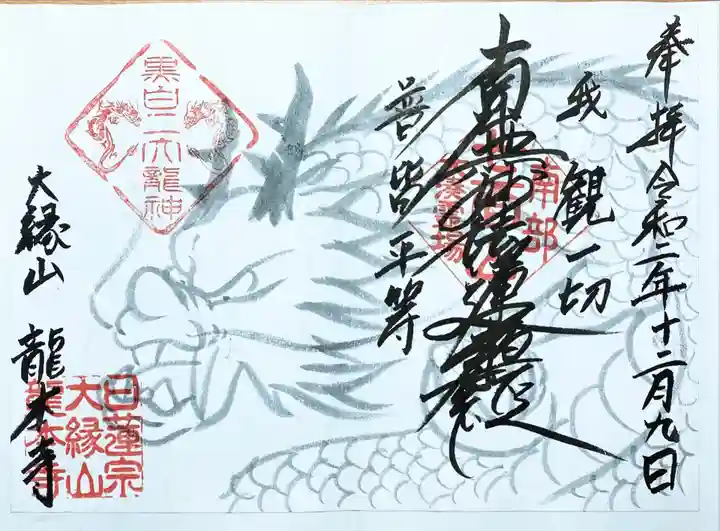 奉拝 令和二年十二月九日
我観一切
南無妙法蓮華経
普皆平等
南部
霊場
黒白二大龍神
大縁山 龍本寺
日蓮宗
大縁山
龍本寺